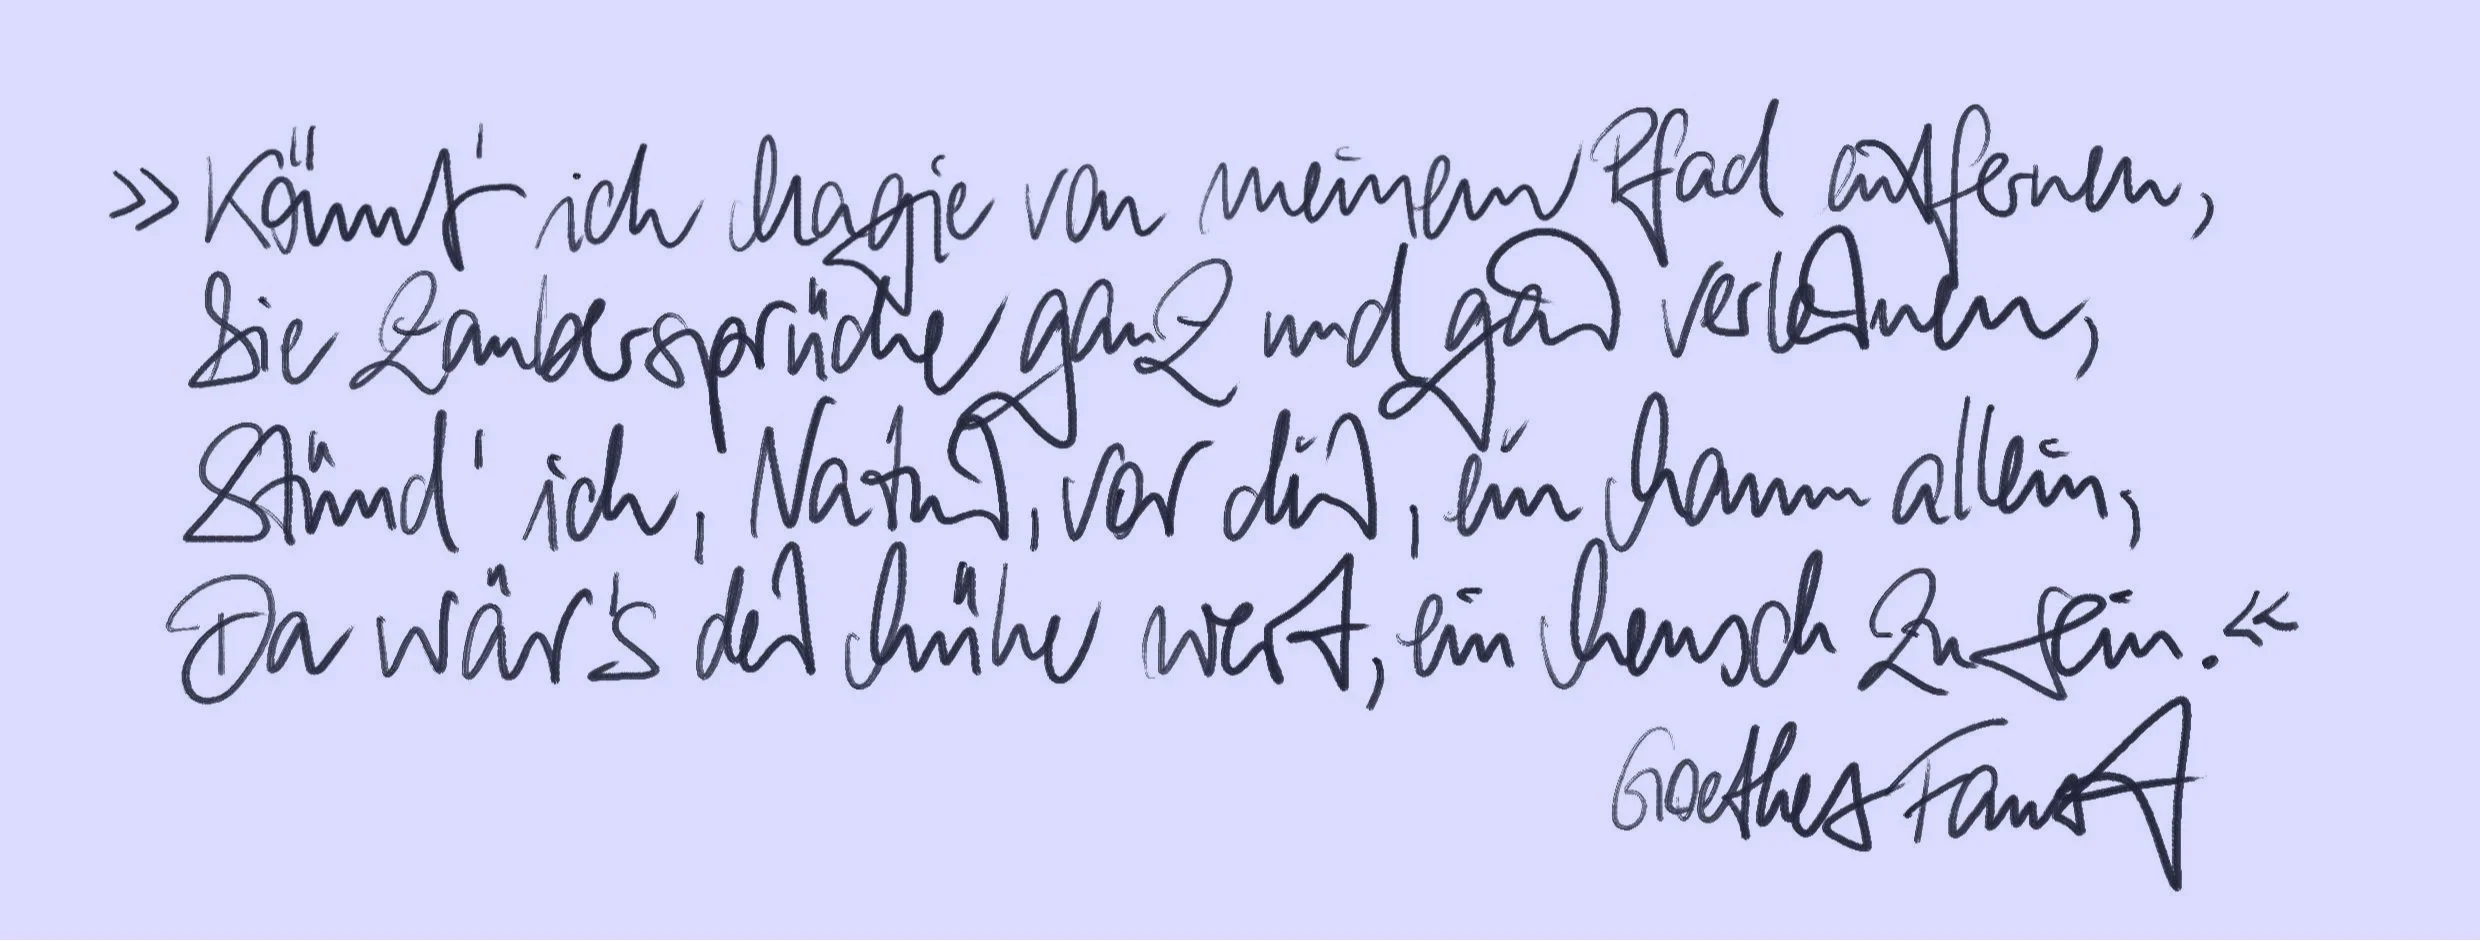 »Könnt' ich Magie von meinem Pfad entfernen,
Die Zaubersprüche ganz und gar verlernen,
Stünd' ich, Natur, vor dir, ein Mann allein,
Da wär's der Mühe wert, ein Mensch zu sein.«
Goethes Faust